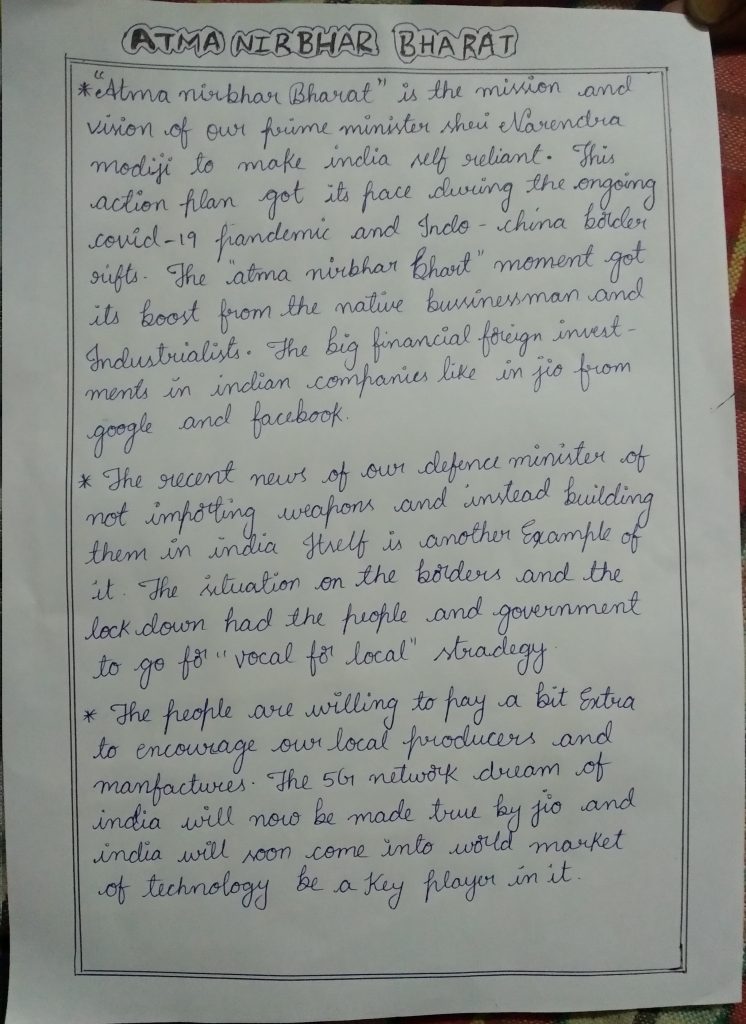 ATMA NIRBHAR BHARAT
*"Atma nirbhar Bharat" is the mission and
vision of our prime minister shri Narendra
modiji to make india self reliant. This
action plan got its pace during the ongoing
covid-19 pandemic and Indo - china border
rifts. The "atma nirbhar bhart" moment got
its boost from the native bussinessman and
Industrialists. The big financial foreign invest-
ments in indian companies like in jio from
google and facebook.
* The recent news of our defence minister of
not importing weapons and instead building
them in india Itself is another Example of
it. The situation on the borders and the
lock down had the people and government
to go for "vocal for local" stradegy
* The people are willing to pay a bit Extra
to encourage our local producers and
manfactures. The 5G network dream of
india will now be made true by jio and
india will soon come into world market
of technology be a Key player in it.